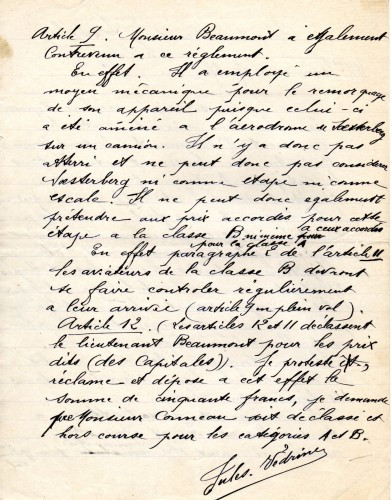 Article 9. Monsieur Beaumont à également
Contrevenu a ce règlement.
En effet. Il a employé un
moyen mécanique pour le remorquage
de son appareil puisque celui-ci
a été aminé a l'aérodrome de
sur un camion. Il n'y a donc pas
atterri et ne peut donc pas considérer
Soesterberg ni comme etape ni comme
escale. Il ne peut donc egalement
pretendre aux prix accordés pour cette
étape a la classe B ni même a ceux accordés
pour la classe A
En effet paragraphe E de l'article 11
les aviateurs de la classe B devront
se faire controler régulièrement
a leur arrivée (article 9 en plein vol).
Article 12. (Les articles 12 et 11 declassent
le lieutenant Beaumont pour les prix
dits (des Capitales)). Je proteste et,
réclame et dépose a cet effet la
somme de cinquante francs, je demande
que Monsieur Conneau soit déclassé et
hors course pour les catégories A et B.
Jules. Védrines